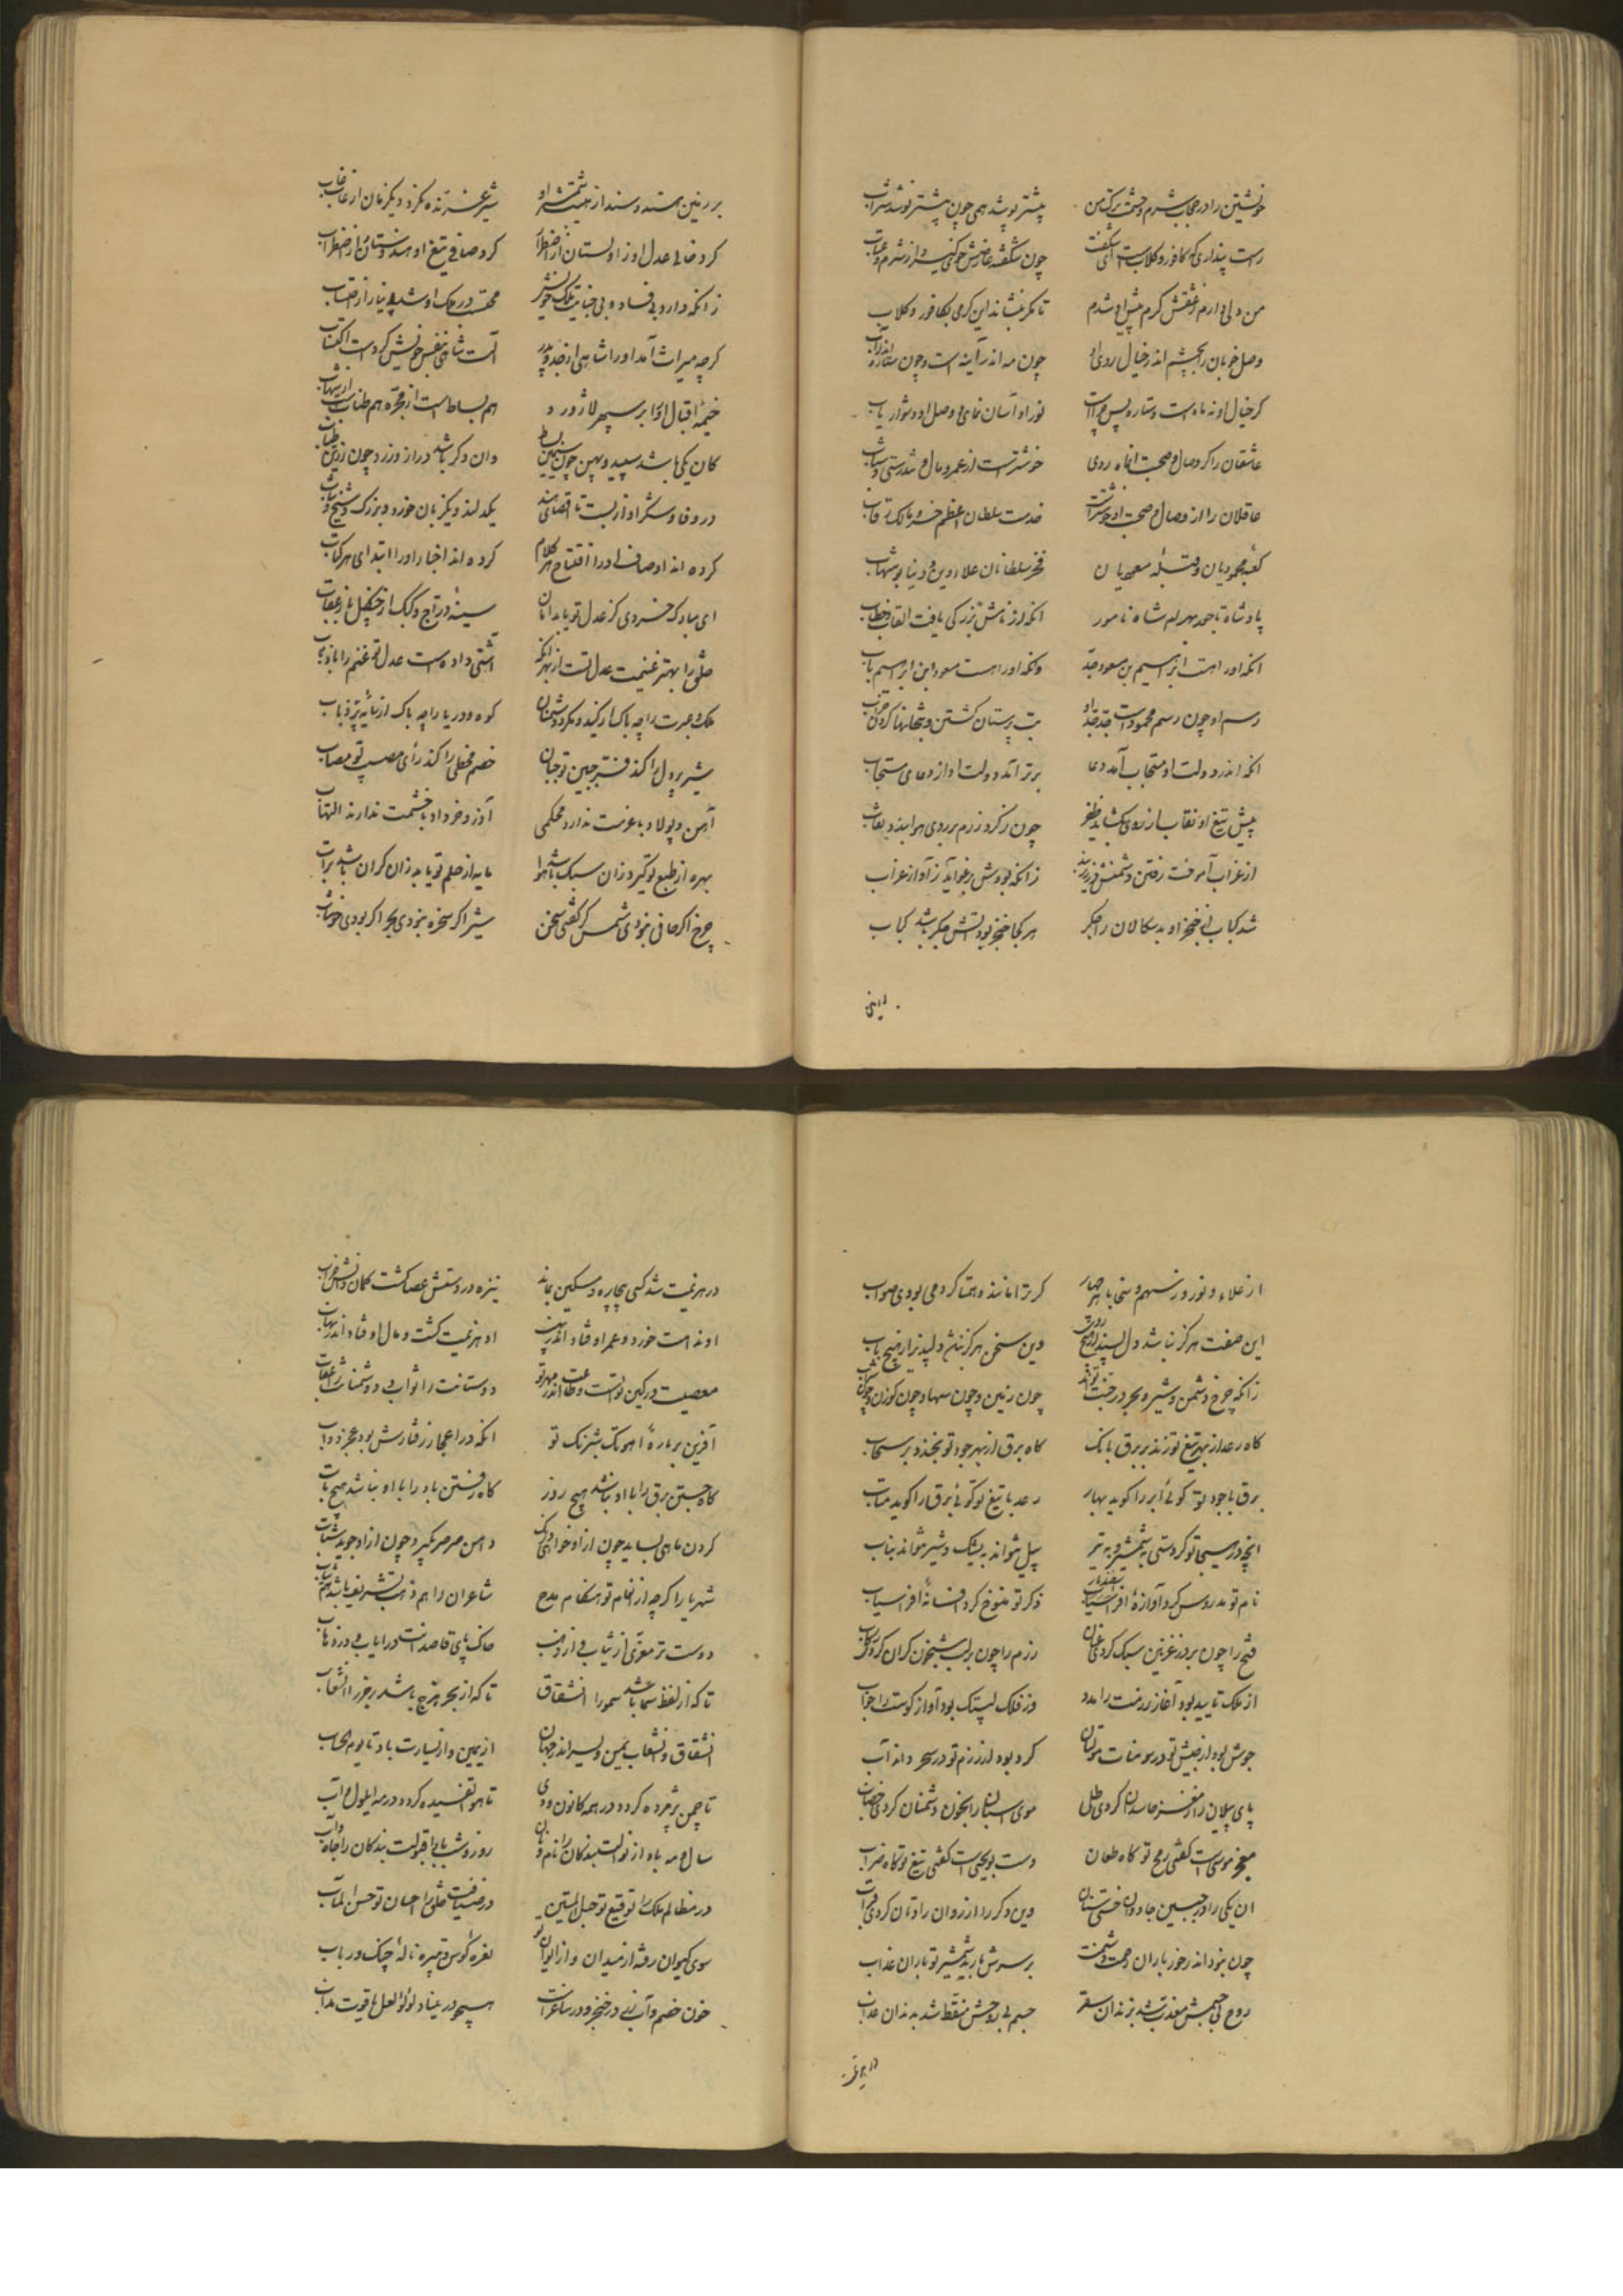 خویشتن را در حجاب شرم و حشمت ترک من بیشتر پوشد همی چون بیشتر نوشد شراب
راست پنداری که کافور و کلابست ای شکفت چون شکفته عارضش خوی کیرد از شرم و عتاب
من دلی دارم ز عشقش کرم پیش او شدم تا مکر بنشاند این کرمی بکافور و کلاب
وصل خوبان را بچشم اندر خیال روی او چون مه اندر آینه است و چون ستاره اندر آب
کر خیال او نه ماهست و ستاره پس چرا است نور او آسان نمای و وصل او دشوار یاب
عاشقان را کر وصال و صحبت آن ماه روی خوشترست از عمر و مال و تندرستی و شباب
عاقلان را از وصال و صحبت او خوشتر است خدمت سلطان اعظم خسرو مالک رقاب
کعبه محمودیان و قبله مسعودیان فخر سلطانان علاء دین و دنیا بو شهاب
پادشاه تاجور بهرام شاه نامور انکه از نامش بزرکی یافت القاب و خطاب
انکه او را هست ابرهیم بن مسعود جد وانکه او را هست مسعود ابن ابراهیم باب
رسم او چون رسم محمودست جد جد او بت پرستان کشتن و بتخانها کردن خراب
انکه اندر دولت او مستجاب آمد دعا برتر آمد دولت او از دعای مستجاب
پیش تیغ او نقاب از روی بکشاید ظفر چون ز کرد رزم بر روی هوا بندد نقاب
از غراب آموخت رفتن دشمنش زانکه بودش رغواید ز آواز غراب
شد کباب از خنجر او بدسکالان را جکر هر کجا خنجر بود آتش جکر باشد کباب
بر زمین هند و سند از هیبت شمشیر او شیر غرنده نکردد یکزمان از غاب غاب
کرد خالی عدل او زاولستان از اضطراب کرد صافی تیغ او هندوستان از اضطراب
زانکه دارد بی فساد و بی خیانت ملک خویش محتسب در ملک او شد بی نیاز از احتساب
کرچه میراث آمد او را شاهی از جد و پدر آن شاهی بنفس خویش کردست اکتساب
خیمهٔ اقبال او را بر سپهر لاژورد هم بساطست از مجره هم طناب از شهاب
کان یکی باشد سپید و پهن چون سیمین بساط وان دکر باشد دراز و زرد چون زرین طناب
در وفا و شکر او از بست تا اقصای هند یکدلند و یکزبان خورد و بزرک و شیخ و شاب
کرده اند اوصاف او را افتتاح هر کلام کرده اند اخبار او را ابتدای هر کتاب
ای مبارک خسروی کز عدل تو یابد امان سینهٔ دراج و کبک از چنکل باز و عقاب
خلق را بهتر غنیمت عدل تست از بهر آنکه آشتی دادست عدل تو غنم را با ذئاب
کوه و دریا را چه باک از سایهٔ پر ذباب
شیر پر دل را کند فر جبین تو جبان خصم مخطی را کند رأی مصیب تو مصاب
آهن و پولاد با عزمت ندارد محکمی آذر و خرداد با خشمت ندارند التهاب
بهره از طبع تو کیرد زان سبک باشد هوا مایه از حلم تو یابد زان کران باشد تراب
چرخ اکر صافی نبودی شمس کر کفتی سخن شیر اکر سخره نبودی بحر اکر بودی خوشاب
از علاء و نور و سهم و سخا با هر چهار کر ترا مانند و همتا کردمی بودی صواب
این صفت هرکز نباشد دل پسند از هیچ روی وین سخن هرکز نباشد دلپذیر از هیچ باب
زانکه چرخ و شمس و شیر و بحر در جنب تواند چون زمین و چون سها و چون کوزن و چون سراب
کاه رعد از بهر تیغ تو زند بر برق بانک کاه برق از بهر جود تو بخندد بر سحاب
برق با جود تو کوئی ابر را کوید بهار رعد با تیغ تو کوئی برق را کوید متاب
انچه در تو کردستی بشمشیر و به تیر پیل نتواند به یشک و شیر نتواند بناب
نام تو مدروس کرد آوازهٔ اسفندیار ذکر تو منسوخ کرد افسانهٔ افراسیاب
فتح را چون بر در غزنین سبک کردی عنان رزم را چون بر لب سیحون کران کردی رکاب
از ملک تایید بود آغاز رزمت را مدد وز فلک لبیک بود آواز کوست را جواب
جوش بود از جیش تو در سومنات و مولتان کرد بود از رزم تو در سرحد داراب
پای پیلان را ز مغز حاسدان کردی طلی موی اسبان را بخون دشمنان کردی خضاب
معجز موسی است کفتی رمح تو کاه طعان دست بویحیی است کفتی تیغ تو کاه ضراب
ان یکی را در جبین جادوان خستی سنان وین دکر را از روان رادوان کردی قراب
چون نبود اندر خور باران رحمت دشمنت بر سرش بارید شمشیر تو باران عذاب
روح بی جسمش معذب شد بزندان سقر جسم بی روحش منقط شد بدندان
در هزیمت شد کسی بیچاره و مسکین بماند نیزه در دستش عصا کشت کمان
او ندامت خورد و عمر او فتاد اندر نهیب او هزیمت کشت و مال او فتاد اندر نهاب
معصیت در کین تو تست و طاعت اندر مهر تو دوستانت را ثواب و دشمنانت را عقاب
آفرین بر بارهٔ آهو تک شبرنک تو انکه در اعجاز رفتارش بود عجز دواب
کاه جستن برق را با او نباشد هیچ روز کاه رفتن باد را با او نباشد هیچ تاب
کردن ماهی بساید چون ازو خواهی درنک دامن صرصر بکیرد چون ازو جوید شتاب
شهریارا کرچه از انعام تو هنکام مدح شاعران را هم ذهب تشریف باشد هم ثیاب
دوست تر معزی از ثیاب و از ذهب خاک پای قاصدانت در ایاب و در ذهاب
تا که از لفظ سما باشد سمو را انشقاق تا که از بحر هزج باشد رجز را انشعاب
انشقاق و انشعاب یمن و یسر اندر جهان از یمین و از یسارت باد تا یوم الحساب
تا چمن پژمرده کردد در مه کانون و دی تا هوا تفسیده کردد در مه ایلول و آب
سال و مه باد از نوالت بندکان را نام و نان روز و شب باد از قبولت بندکان را جاه و آب
در مظالم ملک را توقیع تو حبل المتین در ضیافت خلق را احسان تو حسن المآب
سوی کیوان رفته از میدان و از ایوان تو نعره کوس و تبیره نالهٔ چنک و رباب
خون خصم و آب رز در خنجر و در ساغرت همچو در مینا و لؤلؤ لعل و یاقوت مذاب